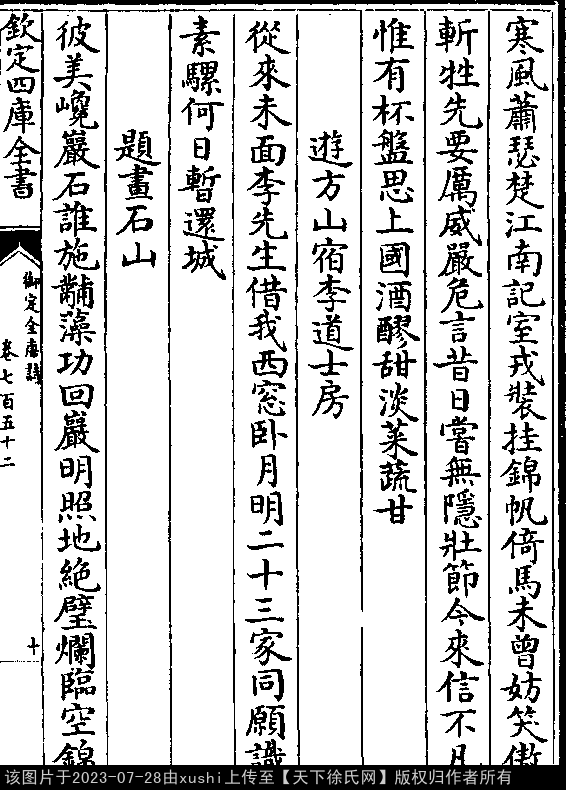 寒風蕭瑟楚江南記室戎裝挂錦帆倚馬未曾妨笑傲
斬牲先要厲威嚴危言昔日嘗無隱壯節今來信不凡
惟有杯盤思上國酒醪甜淡菜蔬甘
遊方山宿李道士房
從來未面李先生借我西窓卧月明二十三家同願識
素騾何日暫還城
題畫石山
彼美巉巖石誰施黼藻功回巖明照地絶壁爛臨空錦
欽定四庫全書
御定全唐詩
卷七百五十二
十
该图片于2023-07-28由xushi上传至【天下徐氏网】版权归作者所有